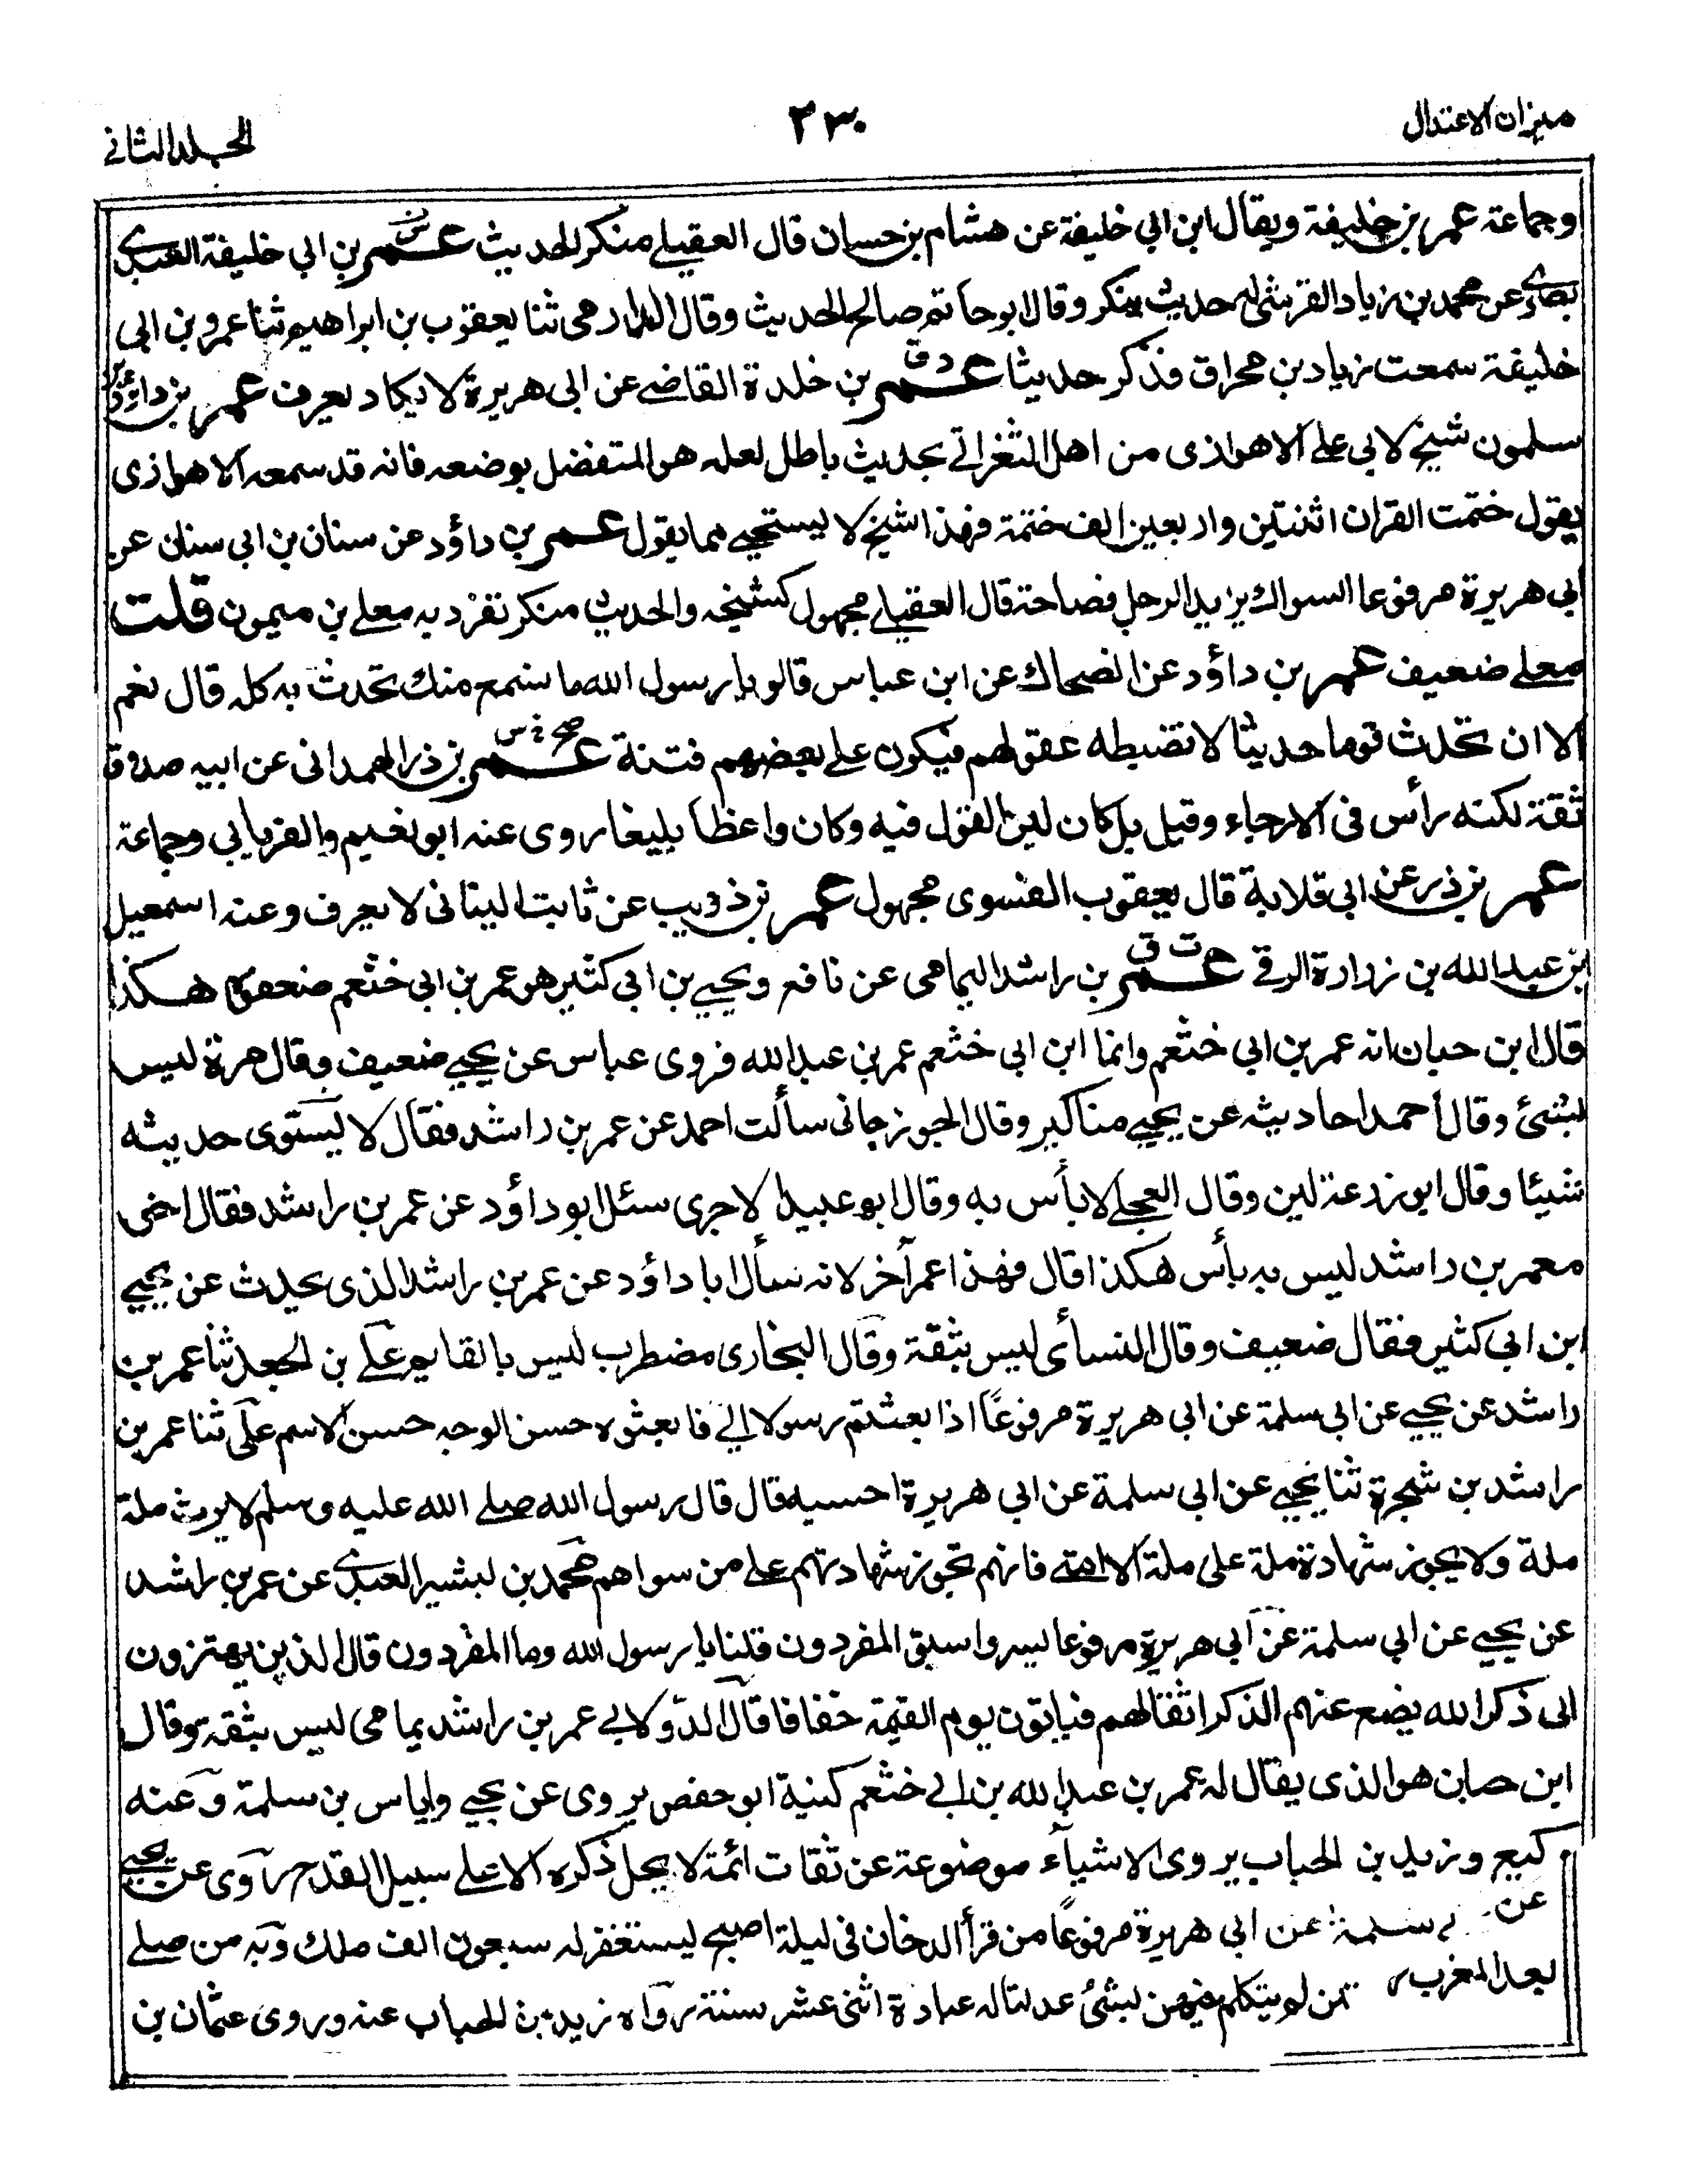 ميزان الاعتدال
٢٣٠
الجلد الثانی
وجماعة عمر بن خليفة ويقال ابن ابي خليفة عن هشام بن حسان قال العقيلے منكر الحديث عمر بن ابي خليفة العبدی
بصری عن محمد بن زياد القرشی له حديث منكر وقال ابو حاتم صالح الحديث وقال الدارمی ثنا يعقوب بن ابراهيم ثنا عمرو بن ابی
خليفة سمعت زياد بن مخراق فذكر حديثا عمر بن خلدة القاضے عن ابی هريرة لا يكاد يعرف عمر بن داؤد بن
سلمون شيخ لابی علے الاهوازی من اهل الثغر اتے بحديث باطل لعله هو المتفضل بوضعه فانه قد سمعه الاهوازی
يقول ختمت القران اثنتين واربعين الف ختمة فهذا شيخ لا يستحيے مما يقول عمر بن داؤد عن سنان بن ابی سنان عن
ابی هريرة مرفوعا السواك يزيد الرجل فصاحة قال العقيلے مجهول كشيخه والحديث منكر تفرد به معلے بن ميمون قلت
معلے ضعيف عمر بن داؤد عن الضحاك عن ابن عباس قالوا يا رسول الله ما نسمع منك نحدث به كله قال نعم
الا ان تحدث قوما حديثا لا تضبطه عقولهم فيكون علے بعضهم فتنة صح خ س عمر بن ذر الهمدانی عن ابيه صدوق
ثقة لكنه رأس فی الارجاء وقيل بل كان لين القول فيه وكان واعظا بليغا روی عنه ابو نعيم والفريابي وجماعة
عمر بن ذر عن ابی قلابة قال يعقوب الفسوی مجهول عمر بن ذؤيب عن ثابت البنانی لا يعرف وعنه اسمعيل
بن عبد الله بن زرارة الرقے ت ق عمر بن راشد اليمامی عن نافع ويحيے بن ابی كثير هو عمر بن ابی خثعم ضعفوه هكذا
قال ابن حبان انه عمر بن ابي خثعم وانما ابن ابی خثعم عمر بن عبد الله فروی عباس عن يحيے ضعيف وقال مرة ليس
بشئ وقال أحمد احاديثه عن يحيے مناكير وقال الجوزجانی سألت احمد عن عمر بن راشد فقال لا يستوی حديثه
شيئا وقال ابو زرعة لين وقال العجلے لا بأس به وقال ابو عبيد الاجری سئل ابو داؤد عن عمر بن راشد فقال اخی
معمر بن راشد ليس به بأس هكذا قال فهذا عمر آخر لانه سأل ابا داؤد عن عمر بن راشد الذی يحدث عن يحيے
ابن ابی كثير فقال ضعيف وقال النسأی ليس بثقة وقال البخاری مضطرب ليس بالقايم علے بن الجعد ثنا عمر بن
راشد عن يحيے عن ابی سلمة عن ابی هريرة مرفوعًا اذا بعثتم رسولا الي فابعثوه حسن الوجه حسن الاسم علی ثنا عمر بن
راشد بن شجرة ثنا يحيے عن ابی سلمة عن ابی هريرة احسبه قال قال رسول الله صلے الله عليه وسلم لا يرث ملة
ملة ولا يجوز شهادة ملة علی ملة الا امتے فانهم تجوز شهادتهم علے من سواهم محمد بن بشير العبدی عن عمر بن راشد
عن يحيے عن ابی سلمة عن ابی هريرة مرفوعا سيروا سبق المفردون قلنا يا رسول الله وما المفردون قال الذين يهتزون
الی ذكر الله يضع عنهم الذكر اثقالهم فياتون يوم القيمة خفافا قال الدولابے عمر بن راشد يمامی ليس بثقة وقال
ابن حبان هو الذی يقال له عمر بن عبد الله بن ابے خثعم كنية ابو حفص يروی عن يحيے واياس بن سلمة وعنه
وكيع وزيد بن الحباب يروی الاشياء موضوعة عن ثقات ائمة لا يحل ذكره الا علے سبيل القدح روی عن يحيے
عن سلمة عن ابی هريرة مرفوعًا من قرأ الدخان فی ليلة اصبح يستغفر له سبعون الف ملك وبه من صلے
بعد المغرب لم يتكلم بينهن بشئ عدلنا له عبادة اثنی عشر سنة رواه زيد بن الحباب عنه وروی عثمان بن